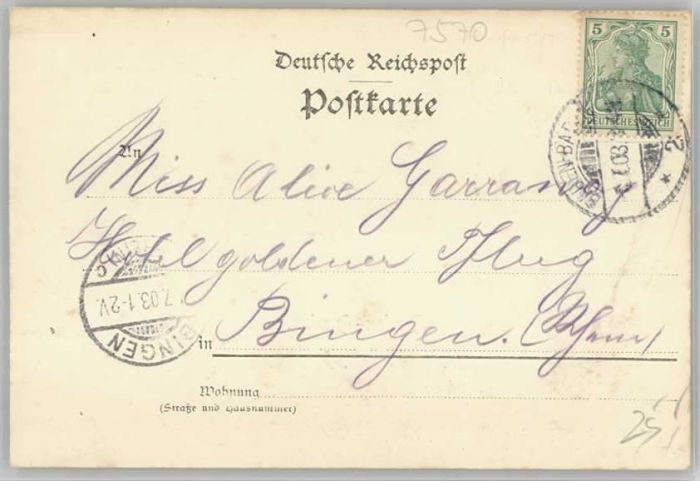 7570
5 5
DEUTSCHES REICH
Deutsche Reichspost
Postkarte
An Miss Alice Garrans
Hotel goldener Pflug
in Bingen. (Rhein)
BADEN-BADEN
7.03.
* 2 *
BINGEN
7.03.1-2V.
C
Wohnung
(Straße und Hausnummer)
25